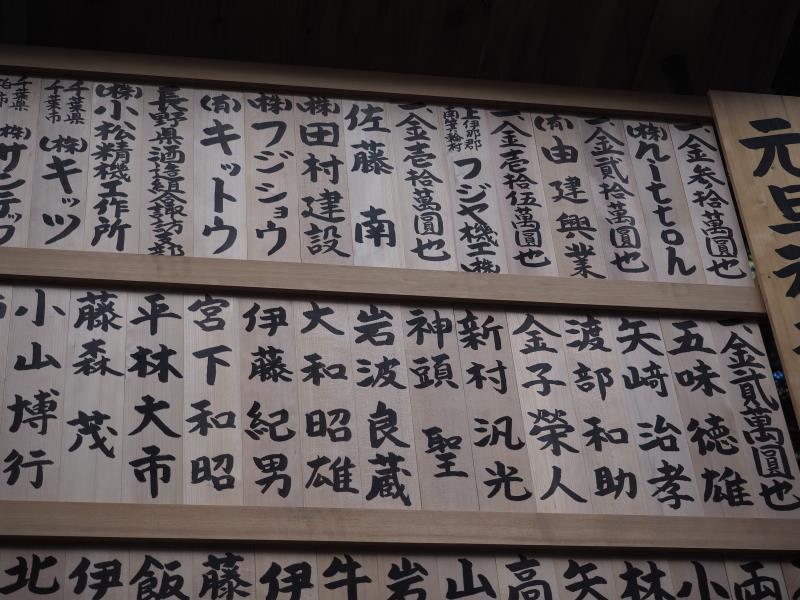 元旦
一、金参拾萬圓也
(株)nitton
一、金貳拾萬圓也
(有)由建興業
一、金壱拾伍萬圓也
上伊那郡南箕輪村 フジヤ機工(株)
一、金壱拾萬圓也
佐藤南
(株)田村建設
(株)フジショウ
(有)キットウ
長野県酒造組合諏訪支部
(株)小松精機工作所
千葉県千葉市 (株)キッツ
千葉県 (株)サンテップ
一、金貳萬圓也
五味徳雄
矢崎治孝
渡部和助
金子榮人
新村汎光
神頭聖
岩波良蔵
大和昭雄
伊藤紀男
宮下和昭
平林大市
藤森茂
小山博行
両
小
林
矢
高
山
岩
牛
伊
藤
飯
伊
北